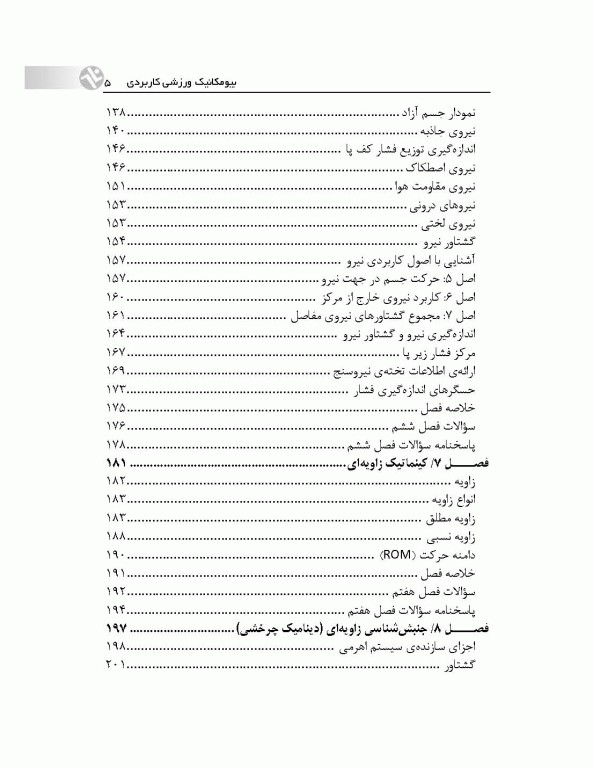 بیومکانیک ورزشی کاربردی ۵
نمودار جسم آزاد ۱۳۸
نیروی جاذبه ۱۴۰
اندازه‌گیری توزیع فشار کف پا ۱۴۶
نیروی اصطکاک ۱۴۶
نیروی مقاومت هوا ۱۵۱
نیروهای درونی ۱۵۳
نیروی لختی ۱۵۳
گشتاور نیرو ۱۵۴
آشنایی با اصول کاربردی نیرو ۱۵۷
اصل ۵: حرکت جسم در جهت نیرو ۱۵۷
اصل ۶: کاربرد نیروی خارج از مرکز ۱۶۰
اصل ۷: مجموع گشتاورهای نیروی مفاصل ۱۶۱
اندازه‌گیری نیرو و گشتاور نیرو ۱۶۴
مرکز فشار زیر پا ۱۶۷
ارائه‌ی اطلاعات تخته‌ی نیروسنج ۱۶۹
حسگرهای اندازه‌گیری فشار ۱۷۳
خلاصه فصل ۱۷۵
سؤالات فصل ششم ۱۷۶
پاسخنامه سؤالات فصل ششم ۱۷۸
فصـــل ۷/ کینماتیک زاویه‌ای ۱۸۱
زاویه ۱۸۲
انواع زاویه ۱۸۳
زاویه مطلق ۱۸۳
زاویه نسبی ۱۸۸
دامنه حرکت (ROM) ۱۹۰
خلاصه فصل ۱۹۱
سؤالات فصل هفتم ۱۹۲
پاسخنامه سؤالات فصل هفتم ۱۹۴
فصـــل ۸/ جنبش‌شناسی زاویه‌ای (دینامیک چرخشی) ۱۹۷
اجزای سازنده‌ی سیستم اهرمی ۱۹۸
گشتاور ۲۰۱